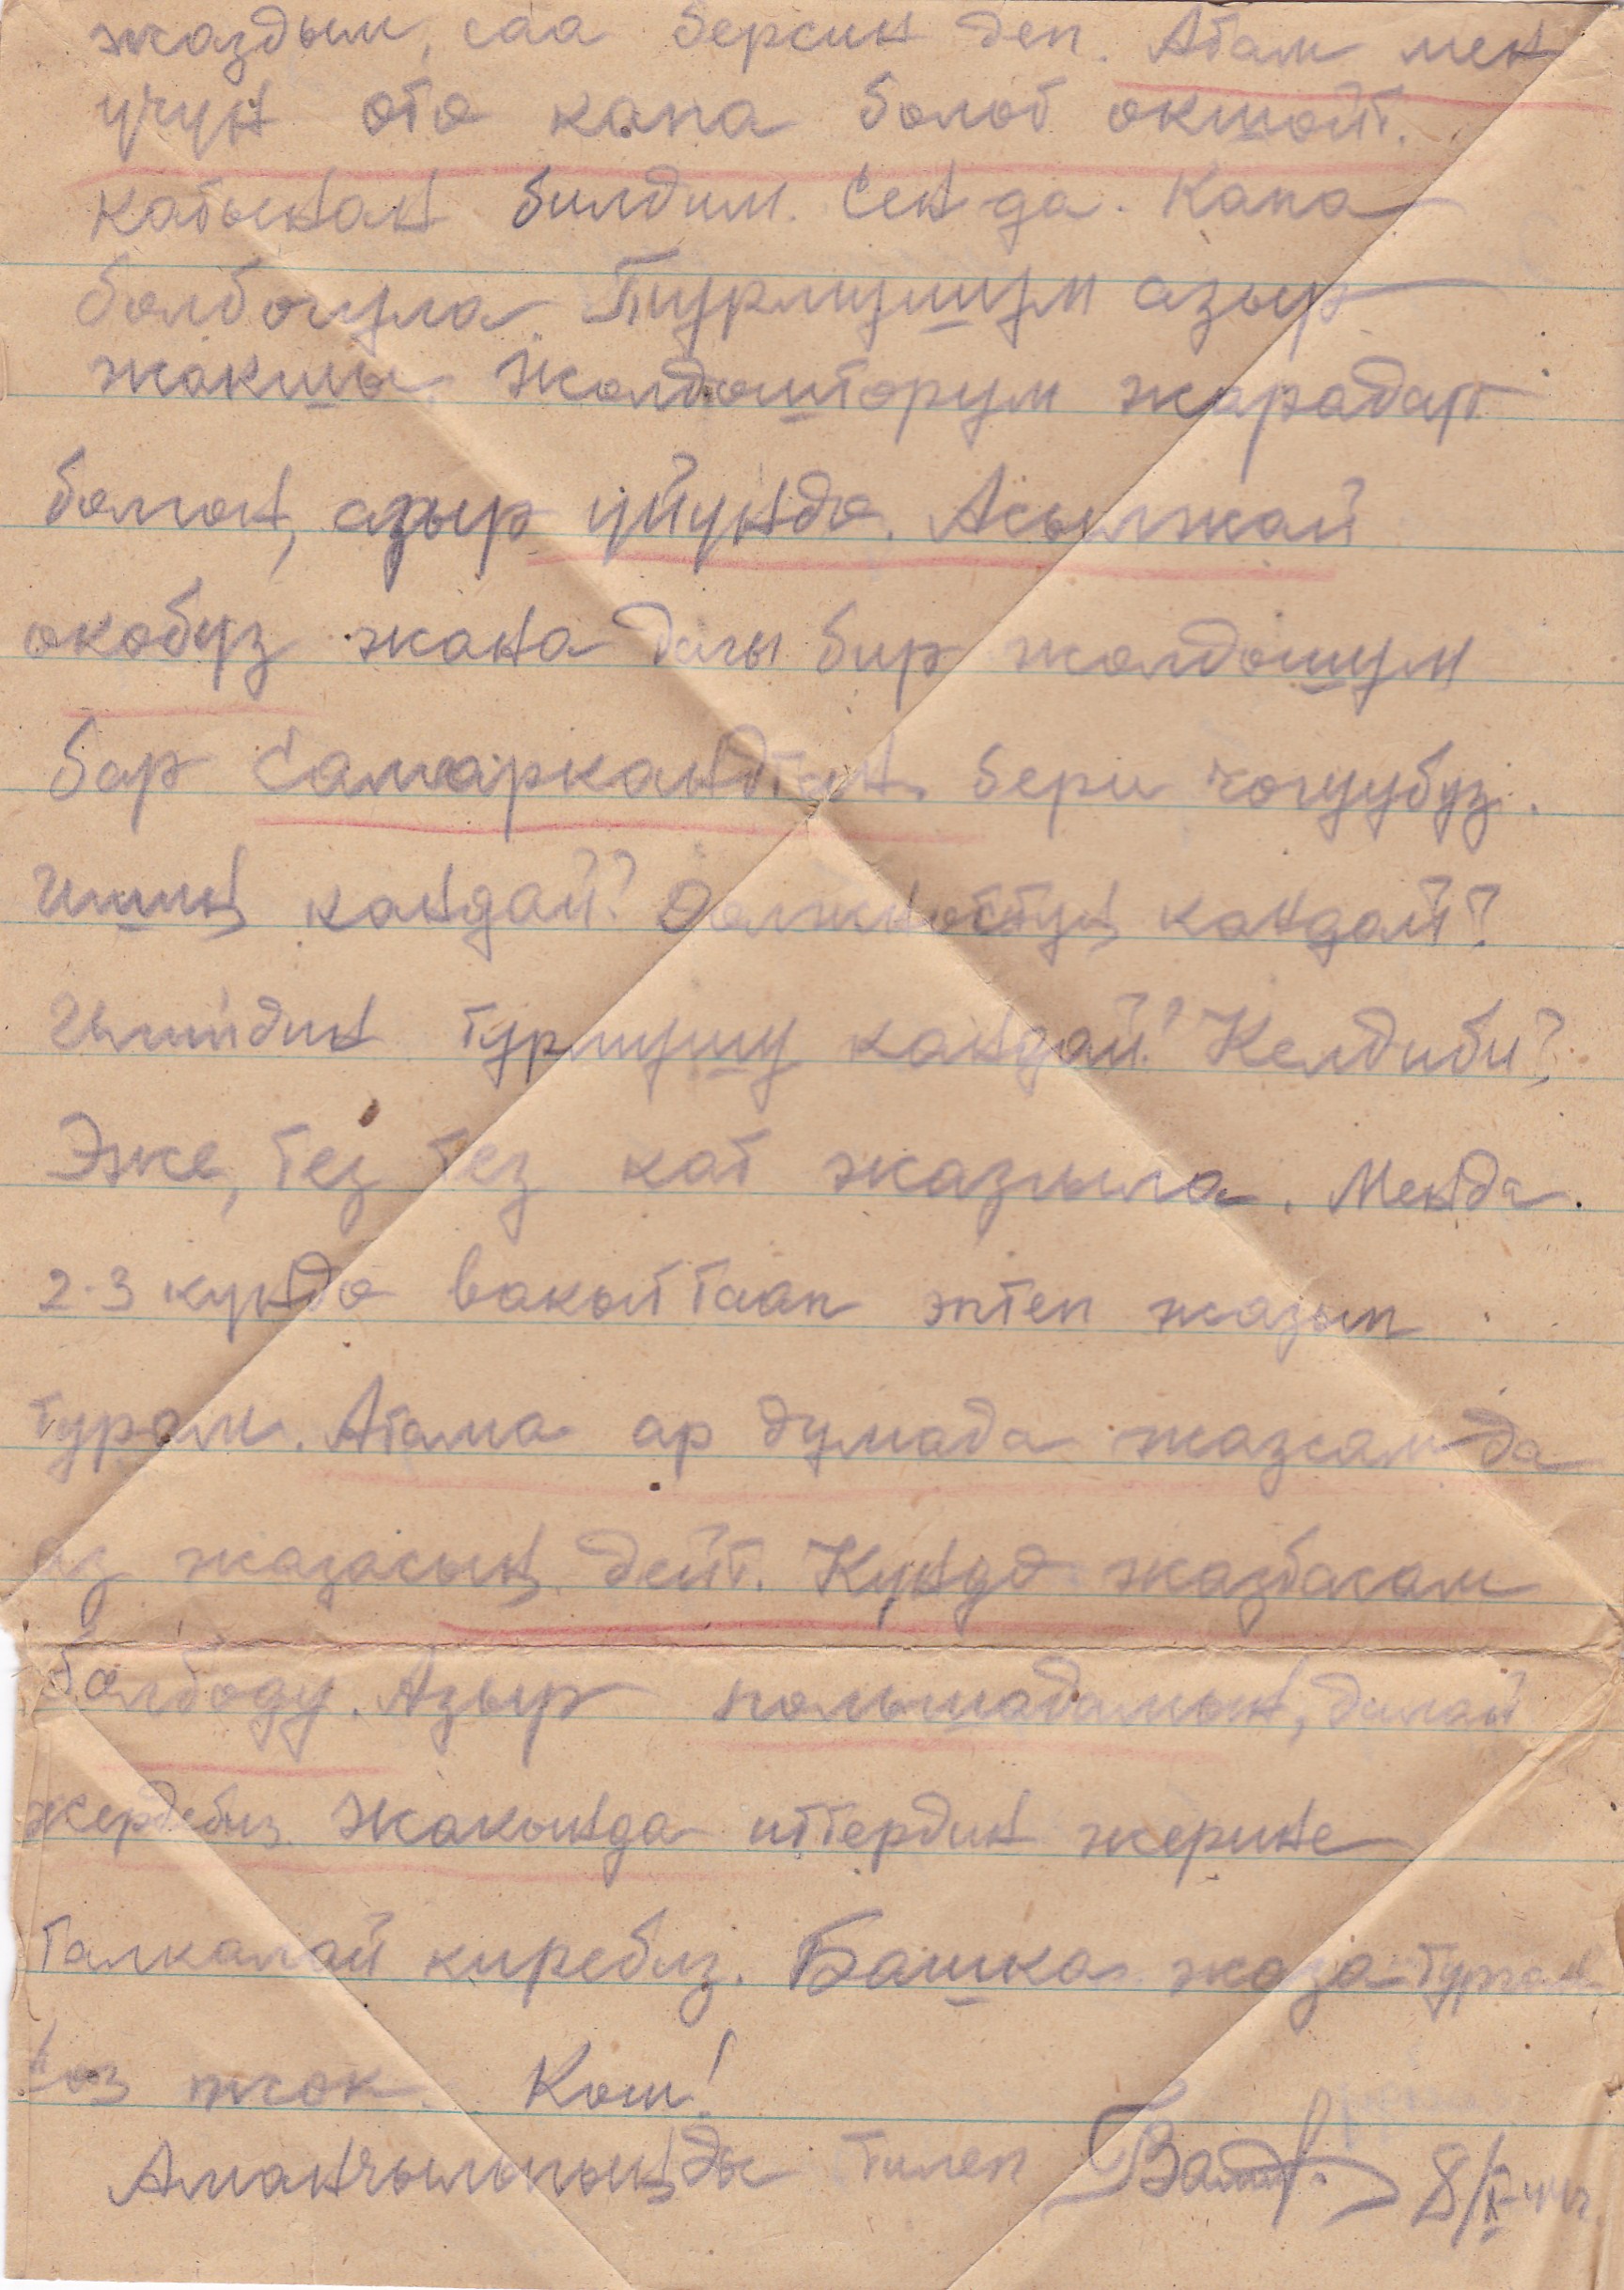 жаздым, саа берсин деп. Атам мен
учун ото капа болот окшойт.
Катынан билдим. Сен да. Капа
болбогула. Турмушум азыр
жакшы. Жолдошторум жарадар
болгон, азыр уйундо. Асылжай
окобуз жана дагы бир жолдошум
бар Самаркандтан бери чогуубуз.
Ишиң кандай? Должностуң кандай?
турмушу кандай? Келдиби?
Эже, тез тез кат жазгыла. Менда.
2-3 кундо вакыттаап эптеп жазып
турам. Атама ар думада жазсам да
аз жазасың дейт. Кундо жазбасам
болбоду. Азыр польшадамын, далай
жердебиз. Жакында иттердин жерине
талкалай киребиз. Башка жаза турган
соз жок. Кош!
Аманчылыгыңды тилеп 8/X-44г.